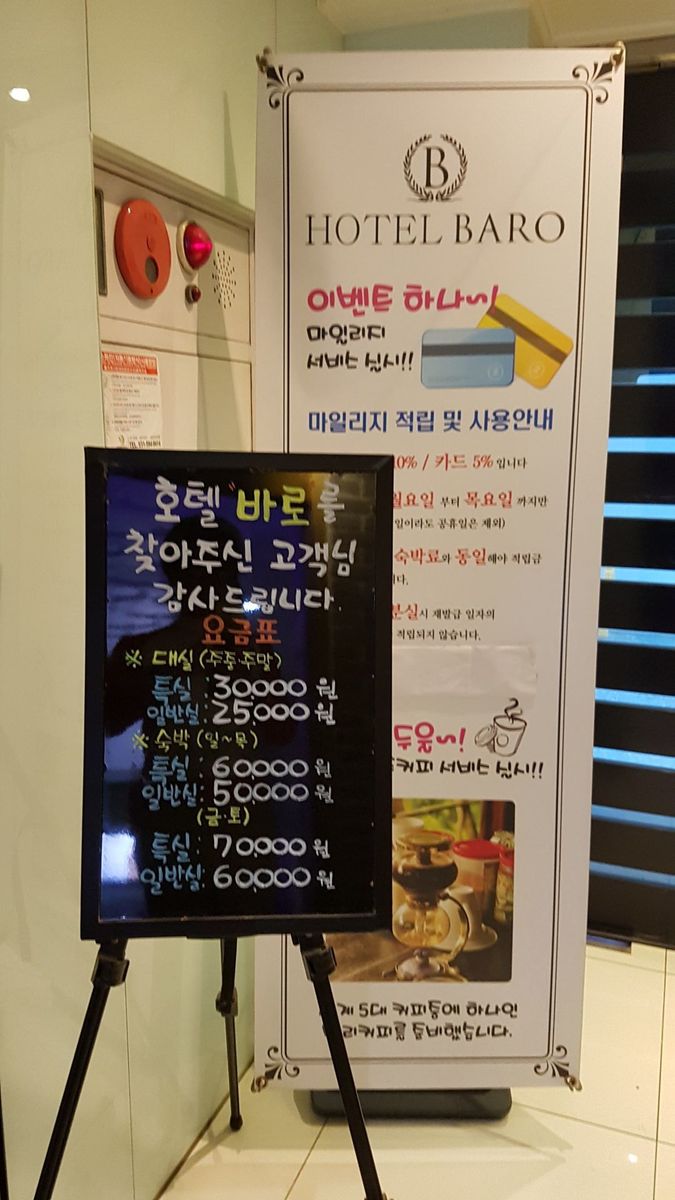 B
HOTEL BARO
이벤트 하나~!
마일리지
서비스 실시!!
마일리지 적립 및 사용안내
10% / 카드 5% 입니다
월요일 부터 목요일 까지만
일이라도 공휴일은 제외)
숙박료와 동일해야 적립금
니다.
분실시 재발급 일자의
적립되지 않습니다.
두울~!
커피 서비스 실시!!
계 5대 커피중에 하나인
리커피를 준비했습니다.
호텔 "바로"를
찾아주신 고객님
감사드립니다.
요금표
※ 대실 (주중·주말)
특실 : 30,000 원
일반실: 25,000 원
※ 숙박 (일~목)
특실 : 60,000 원
일반실: 50,000 원
(금·토)
특실 : 70,000 원
일반실: 60,000 원